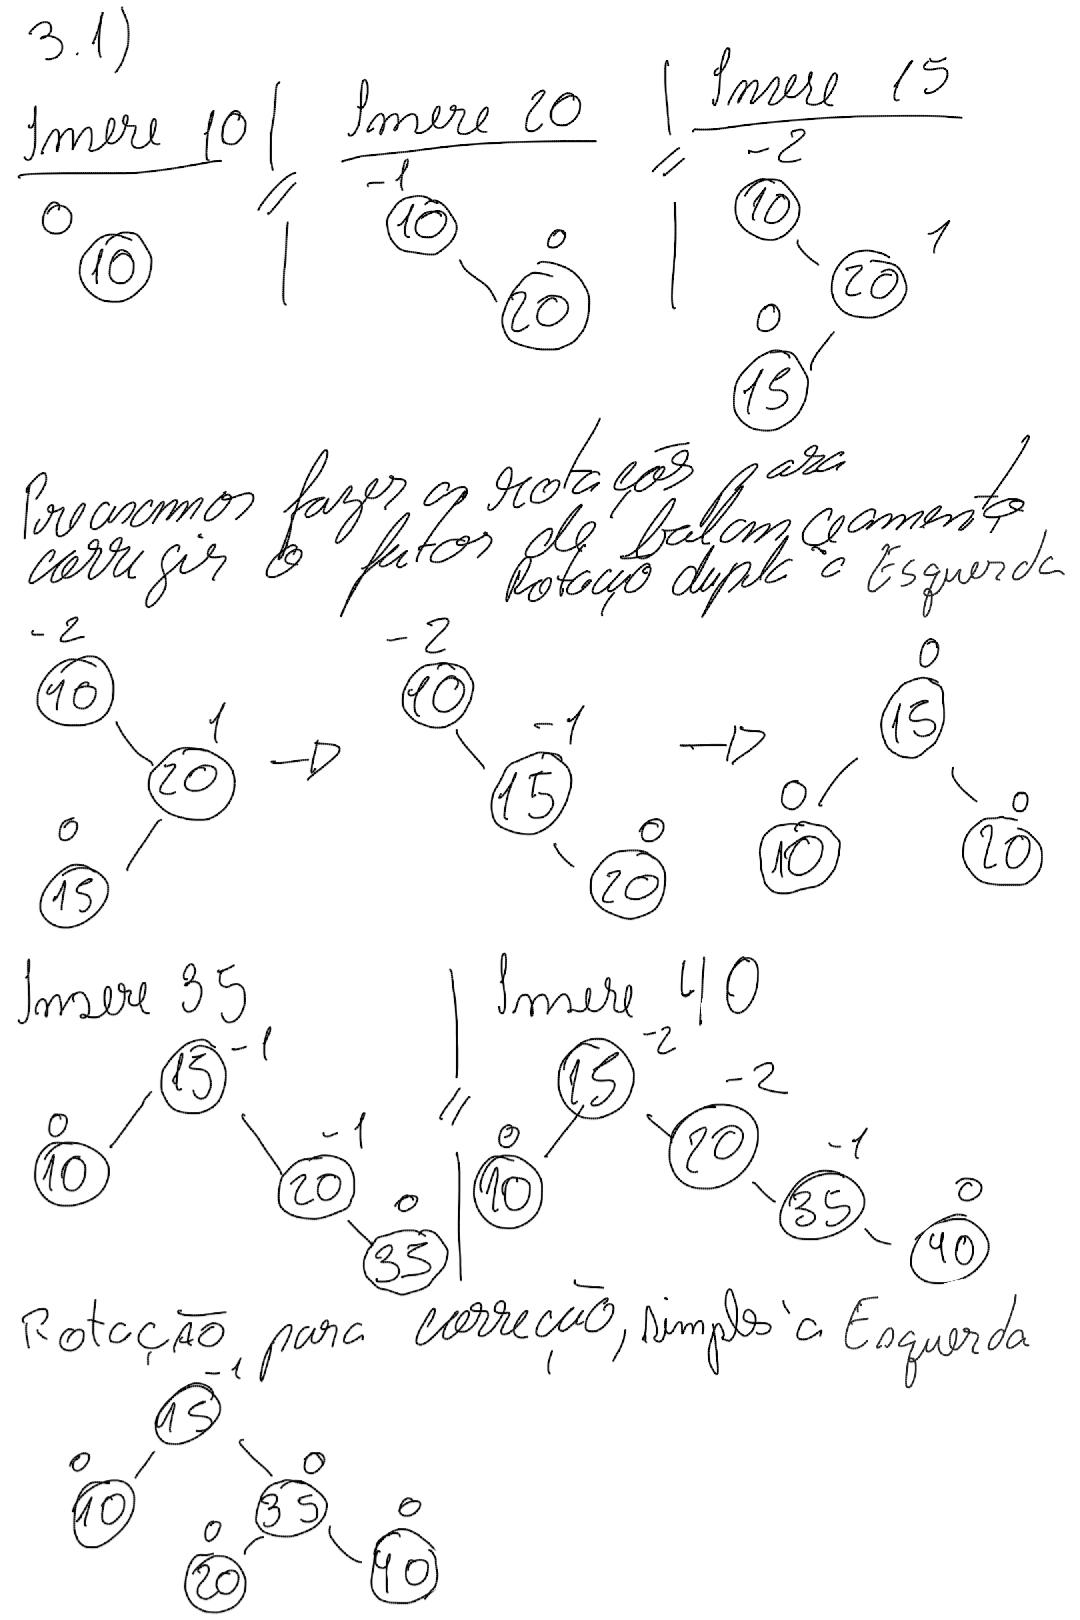 3.1)
Insere 10
Insere 20
Insere 15
0
10
-1
10
0
20
-2
10
20
1
0
15
Precisamos fazer a rotação para
corrigir o fator de balanceamento
Rotação dupla à Esquerda
-2
10
1
20
0
15
-2
10
-1
15
0
20
0
15
0
10
0
20
Insere 35
Insere 40
15 -1
0
10
-1
20
0
35
15 -2
-2
20
0
10
-1
35
0
40
Rotação para correção, simples à Esquerda
-1
15
0
10
0
35
0
20
0
40